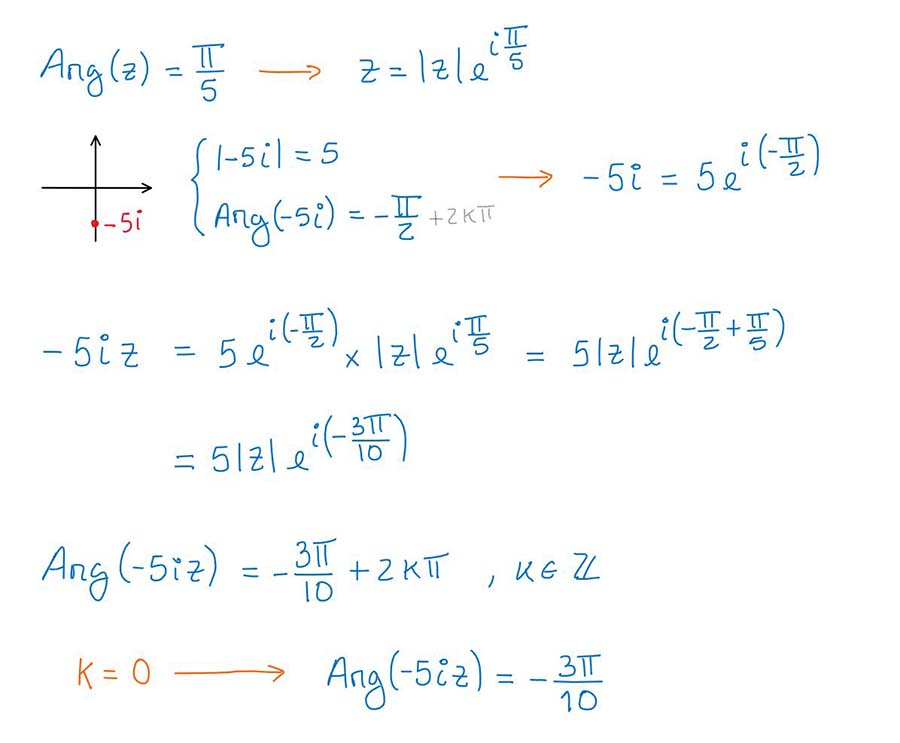 Arg(z) = π/5 → z = |z| e^{i π/5}
-5i
{ |-5i| = 5
Arg(-5i) = -π/2 + 2kπ → -5i = 5 e^{i(-π/2)}
-5iz = 5 e^{i(-π/2)} × |z| e^{i π/5} = 5|z| e^{i(-π/2 + π/5)}
= 5|z| e^{i(-3π/10)}
Arg(-5iz) = -3π/10 + 2kπ , k ∈ ℤ
k = 0 → Arg(-5iz) = -3π/10